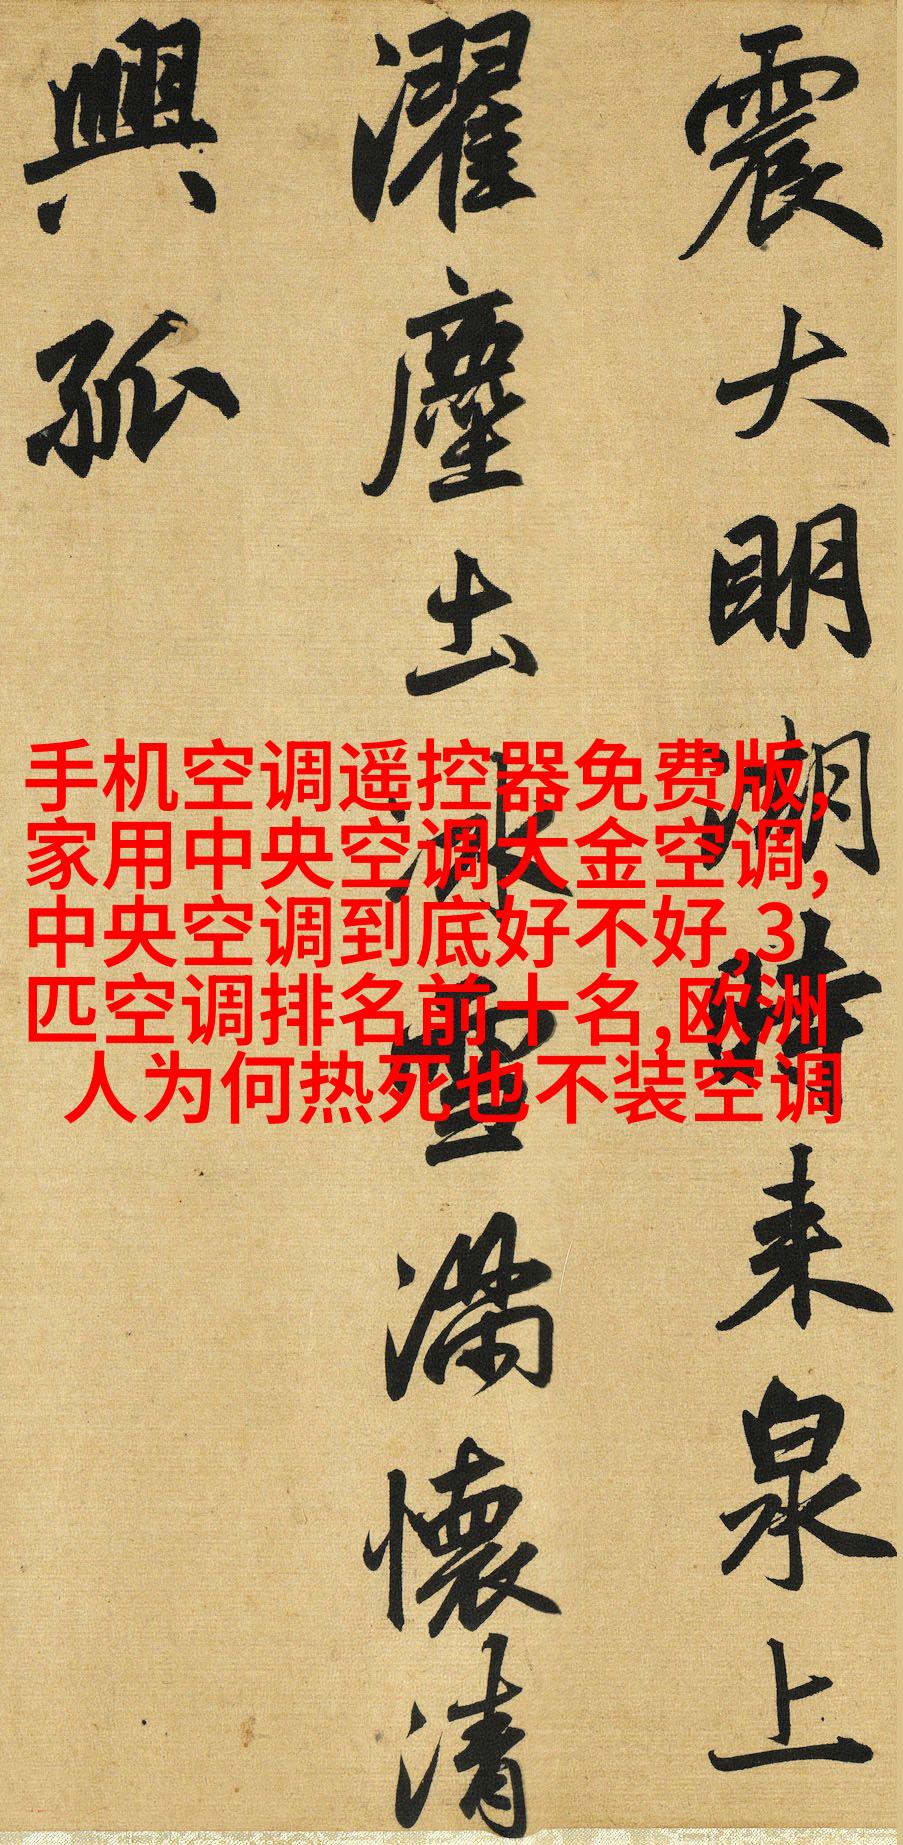 震大明湖時来泉上
濯塵出冰雪滿懷清
興孤
手机空调遥控器免费版,
家用中央空调大金空调,
中央空调到底好不好,3
匹空调排名前十名,欧洲
人为何热死也不装空调